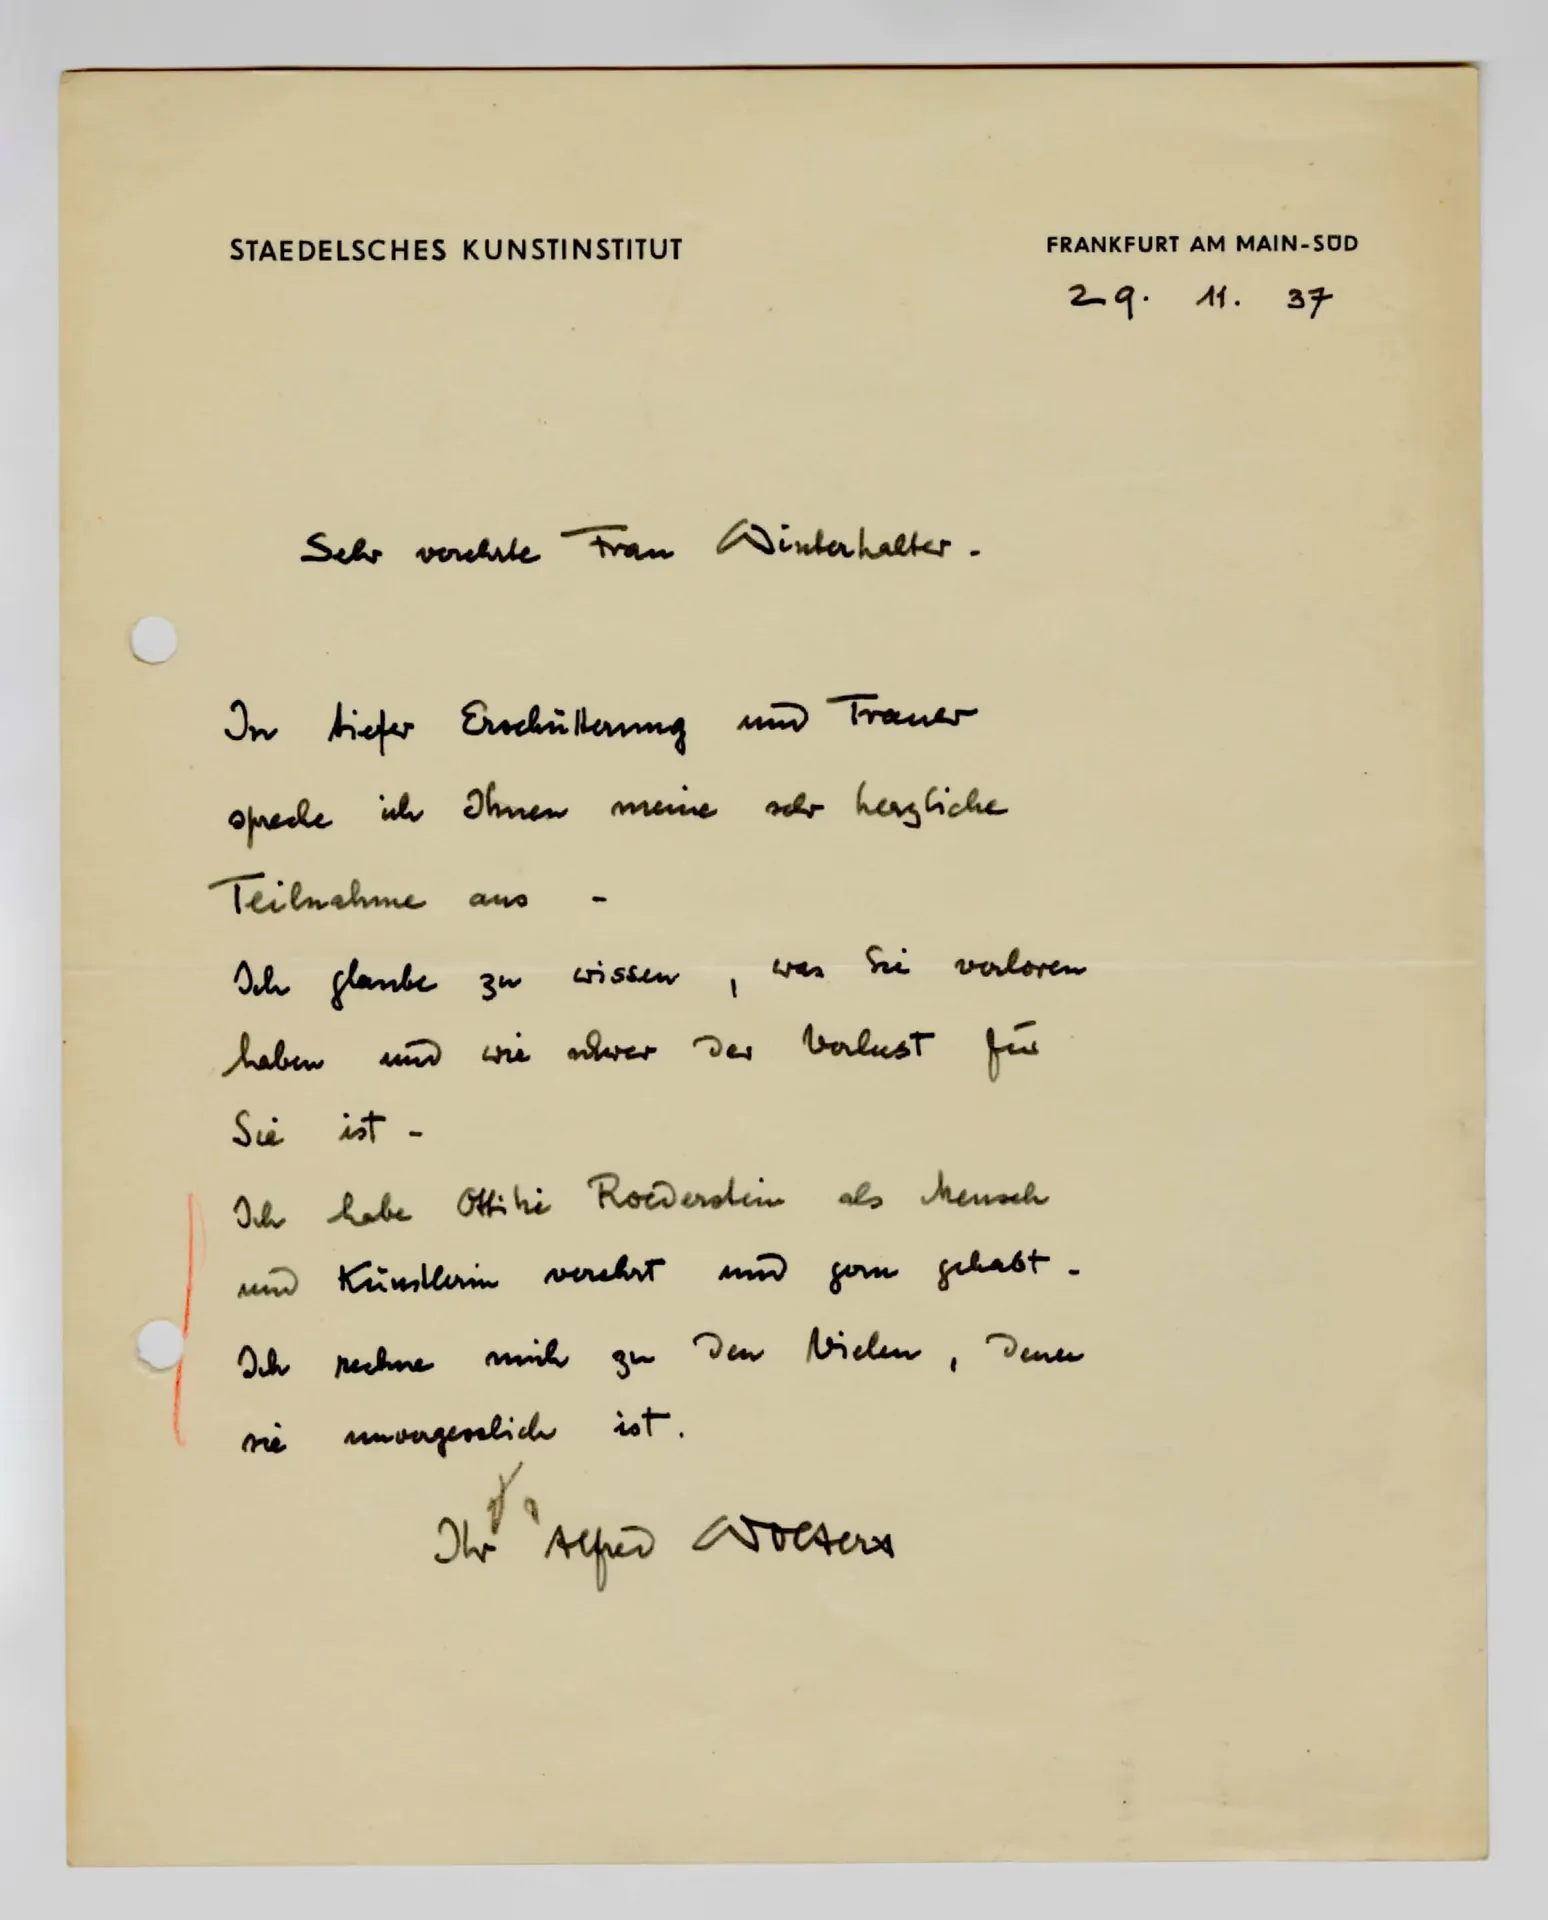 STAEDELSCHES KUNSTINSTITUT
FRANKFURT AM MAIN-SÜD
29. 11. 37
Sehr verehrte Frau Winterhalter.
In tiefer Erschütterung und Trauer
spreche ich Ihnen meine sehr herzliche
Teilnahme aus -
Ich glaube zu wissen, was Sie verloren
haben und wie schwer der Verlust für
Sie ist -
Ich habe Ottilie Roederstein als Mensch
und Künstlerin verehrt und gern gehabt -
Ich rechne mich zu den Vielen, denen
sie unvergesslich ist.
Ihr Alfred Wolters